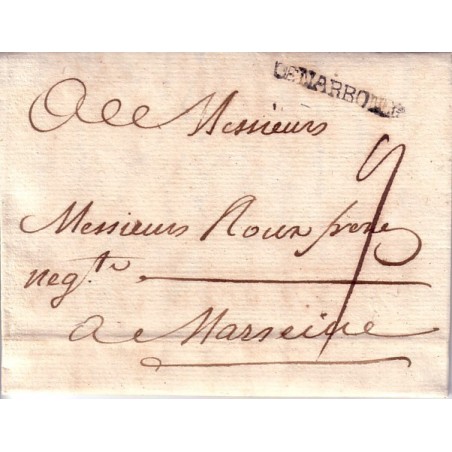 DENARBONNE
A Messieurs
Messieurs Roux freres
neg.ts
a Marseille